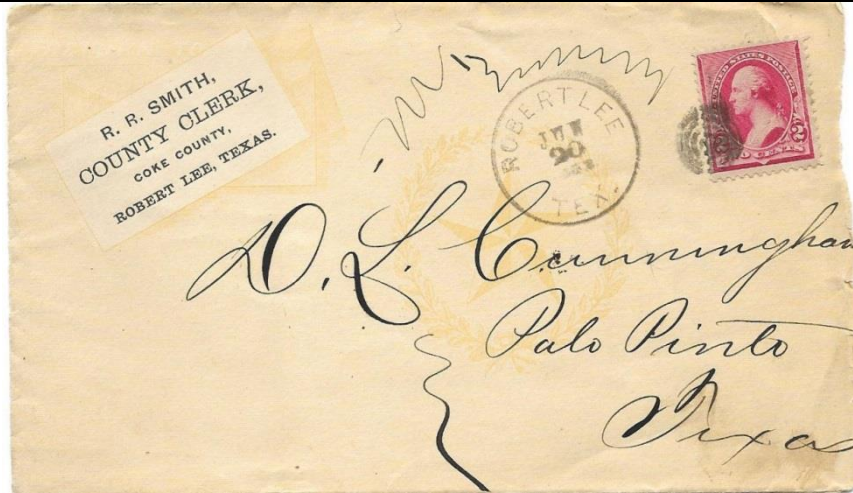 R. R. SMITH,
COUNTY CLERK,
COKE COUNTY,
ROBERT LEE, TEXAS.
ROBERT LEE
20
TEX.
UNITED STATES POSTAGE
2
CENTS
D. L. Cunningham
Palo Pinto
Texas